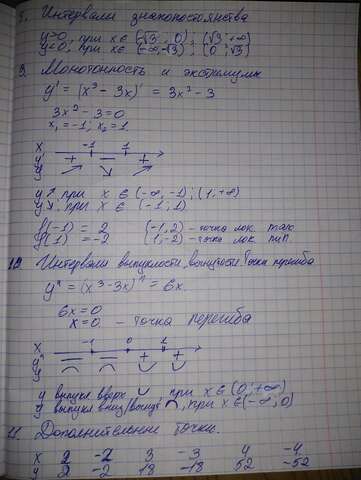 Интервали знакопостоянства
y>0, при x ∈ (-√3; 0); (√3; +∞)
y<0, при x ∈ (-∞, -√3); (0; √3)
9. Монотонность и экстремумы
y' = (x³ - 3x)' = 3x² - 3
3x² - 3 = 0
x₁ = -1; x₂ = 1
x -1 1
y' + - + 
y ↗ ↘ ↗
y ↗ при x ∈ (-∞, -1); (1, +∞)
y ↘ при x ∈ (-1; 1)
f(-1) = 2 (-1, 2) - точка лок. max
f(1) = -2 (1, -2) - точка лок. min
Интервали выпуклости, вогнутости. Точки перегиба
y'' = (x³ - 3x)'' = 6x.
6x = 0
x = 0 - точка перегиба
x -1 0 1
y'' - - + +
y ⌒ ⌒ ∪ ∪
y выпукл вверх ∪ при x ∈ (0; +∞)
y выпукл вниз/вогнут ⌒, при x ∈ (-∞, 0)
11. Дополнительные точки.
x 2 -2 3 -3 4 -4
y 2 -2 18 -18 52 -52